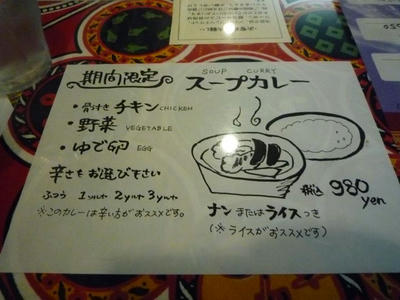 期間限定
SOUP CURRY
スープカレー
・骨付きチキン CHICKEN
・野菜 VEGETABLE
・ゆで卵 EGG
辛さをお選び下さい
ふつう 1ツルヤ 2ツルヤ 3ツルヤ
※このカレーは辛い方がおススメです。
税込 980 yen
ナンまたはライスつき
(※ライスがおススメです)